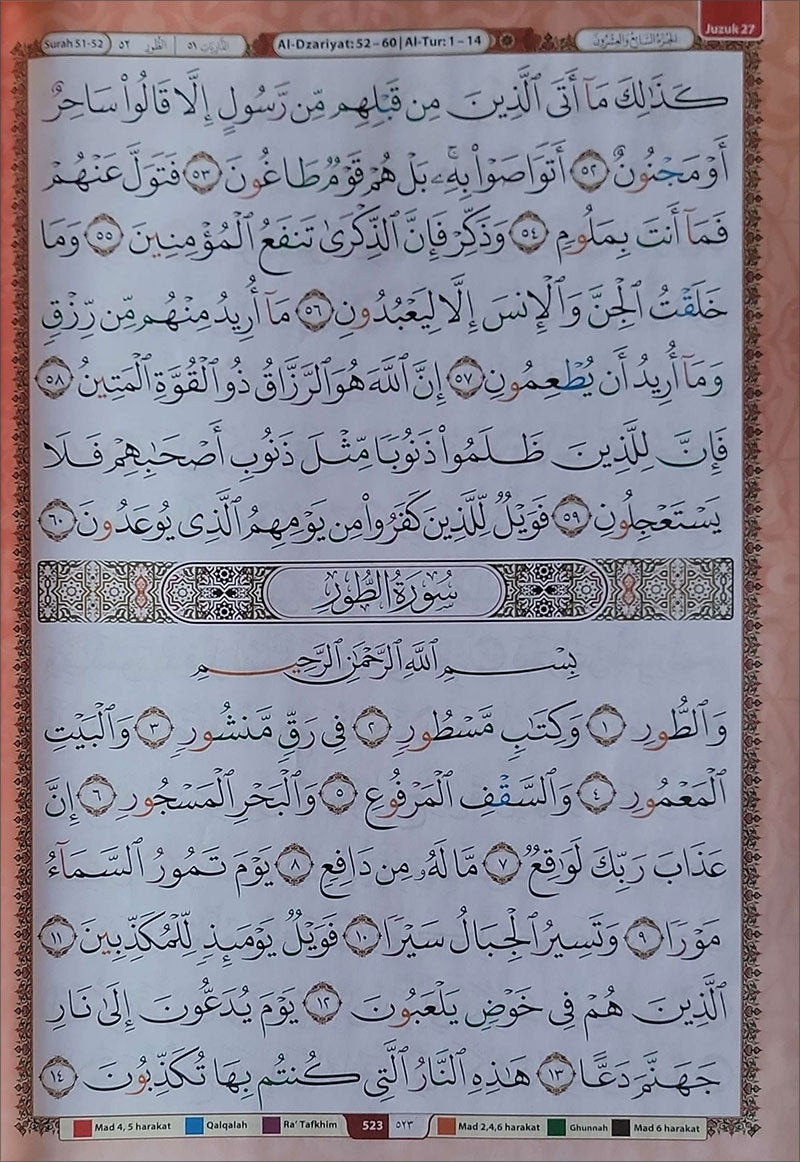 Juzuk 27
Surah 51-52 ٥٢ الطُّور ٥١ الذَّارِيَات
Al-Dzariyat: 52 – 60 | Al-Tur: 1 – 14
الجُزْءُ السَّابِعُ وَالعِشْرُونَ
كَذَٰلِكَ مَآ أَتَى ٱلَّذِينَ مِن قَبْلِهِم مِّن رَّسُولٍ إِلَّا قَالُوا۟ سَاحِرٌ
أَوْ مَجْنُونٌ ٥٢ أَتَوَاصَوْا۟ بِهِۦ ۚ بَلْ هُمْ قَوْمٌ طَاغُونَ ٥٣ فَتَوَلَّ عَنْهُمْ
فَمَآ أَنتَ بِمَلُومٍ ٥٤ وَذَكِّرْ فَإِنَّ ٱلذِّكْرَىٰ تَنفَعُ ٱلْمُؤْمِنِينَ ٥٥ وَمَا
خَلَقْتُ ٱلْجِنَّ وَٱلْإِنسَ إِلَّا لِيَعْبُدُونِ ٥٦ مَآ أُرِيدُ مِنْهُم مِّن رِّزْقٍ
وَمَآ أُرِيدُ أَن يُطْعِمُونِ ٥٧ إِنَّ ٱللَّهَ هُوَ ٱلرَّزَّاقُ ذُو ٱلْقُوَّةِ ٱلْمَتِينُ ٥٨
فَإِنَّ لِلَّذِينَ ظَلَمُوا۟ ذَنُوبًا مِّثْلَ ذَنُوبِ أَصْحَٰبِهِمْ فَلَا
يَسْتَعْجِلُونِ ٥٩ فَوَيْلٌ لِّلَّذِينَ كَفَرُوا۟ مِن يَوْمِهِمُ ٱلَّذِى يُوعَدُونَ ٦٠
سُورَةُ الطُّورِ
بِسْمِ ٱللَّهِ ٱلرَّحْمَٰنِ ٱلرَّحِيمِ
وَٱلطُّورِ ١ وَكِتَٰبٍ مَّسْطُورٍ ٢ فِى رَقٍّ مَّنشُورٍ ٣ وَٱلْبَيْتِ
ٱلْمَعْمُورِ ٤ وَٱلسَّقْفِ ٱلْمَرْفُوعِ ٥ وَٱلْبَحْرِ ٱلْمَسْجُورِ ٦ إِنَّ
عَذَابَ رَبِّكَ لَوَٰقِعٌ ٧ مَّا لَهُۥ مِن دَافِعٍ ٨ يَوْمَ تَمُورُ ٱلسَّمَآءُ
مَوْرًا ٩ وَتَسِيرُ ٱلْجِبَالُ سَيْرًا ١٠ فَوَيْلٌ يَوْمَئِذٍ لِّلْمُكَذِّبِينَ ١١
ٱلَّذِينَ هُمْ فِى خَوْضٍ يَلْعَبُونَ ١٢ يَوْمَ يُدَعُّونَ إِلَىٰ نَارِ
جَهَنَّمَ دَعًّا ١٣ هَٰذِهِ ٱلنَّارُ ٱلَّتِى كُنتُم بِهَا تُكَذِّبُونَ ١٤
Mad 4, 5 harakat Qalqalah Ra' Tafkhim 523 ٥٢٣ Mad 2,4,6 harakat Ghunnah Mad 6 harakat